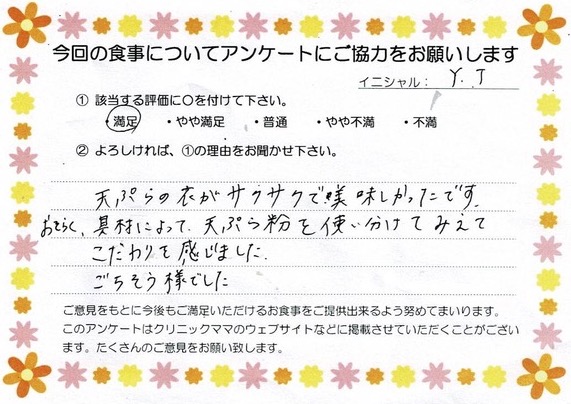 今回の食事についてアンケートにご協力をお願いします
イニシャル： Y.T
① 該当する評価に○を付けて下さい。
・満足 ・やや満足 ・普通 ・やや不満 ・不満
② よろしければ、①の理由をお聞かせ下さい。
天ぷらの衣がサクサクで美味しかったです。
おそらく、具材によって、天ぷら粉を使い分けてみえて
こだわりを感じました。
ごちそう様でした
ご意見をもとに今後もご満足いただけるお食事をご提供出来るよう努めてまいります。
このアンケートはクリニックママのウェブサイトなどに掲載させていただくことがござい
ます。たくさんのご意見をお願い致します。